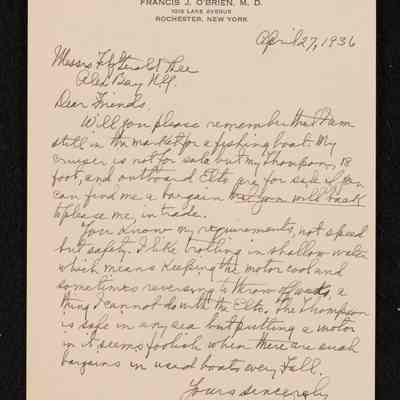 FRANCIS J. O'BRIEN, M. D.
1019 LAKE AVENUE
ROCHESTER, NEW YORK
April 27, 1936
Messrs Fitzgerald & Lee
Alex Bay N.Y.
Dear Friends.
Will you please remember that I am
still in the market for a fishing boat. My
cruiser is not for sale but my Thompson, 18
foot, and outboard Elto are for sale if you
can find me a bargain
to please me, in trade.
You know my requirements, not speed
but safety. I like trolling in shallow water
which means keeping the motor cool and
sometimes reversing to throw off weeds, a
thing I cannot do with the Elto. The Thompson
is safe in any sea but putting a motor
in it seems foolish when there are such
bargains in used boats every Fall.
Yours sincerely